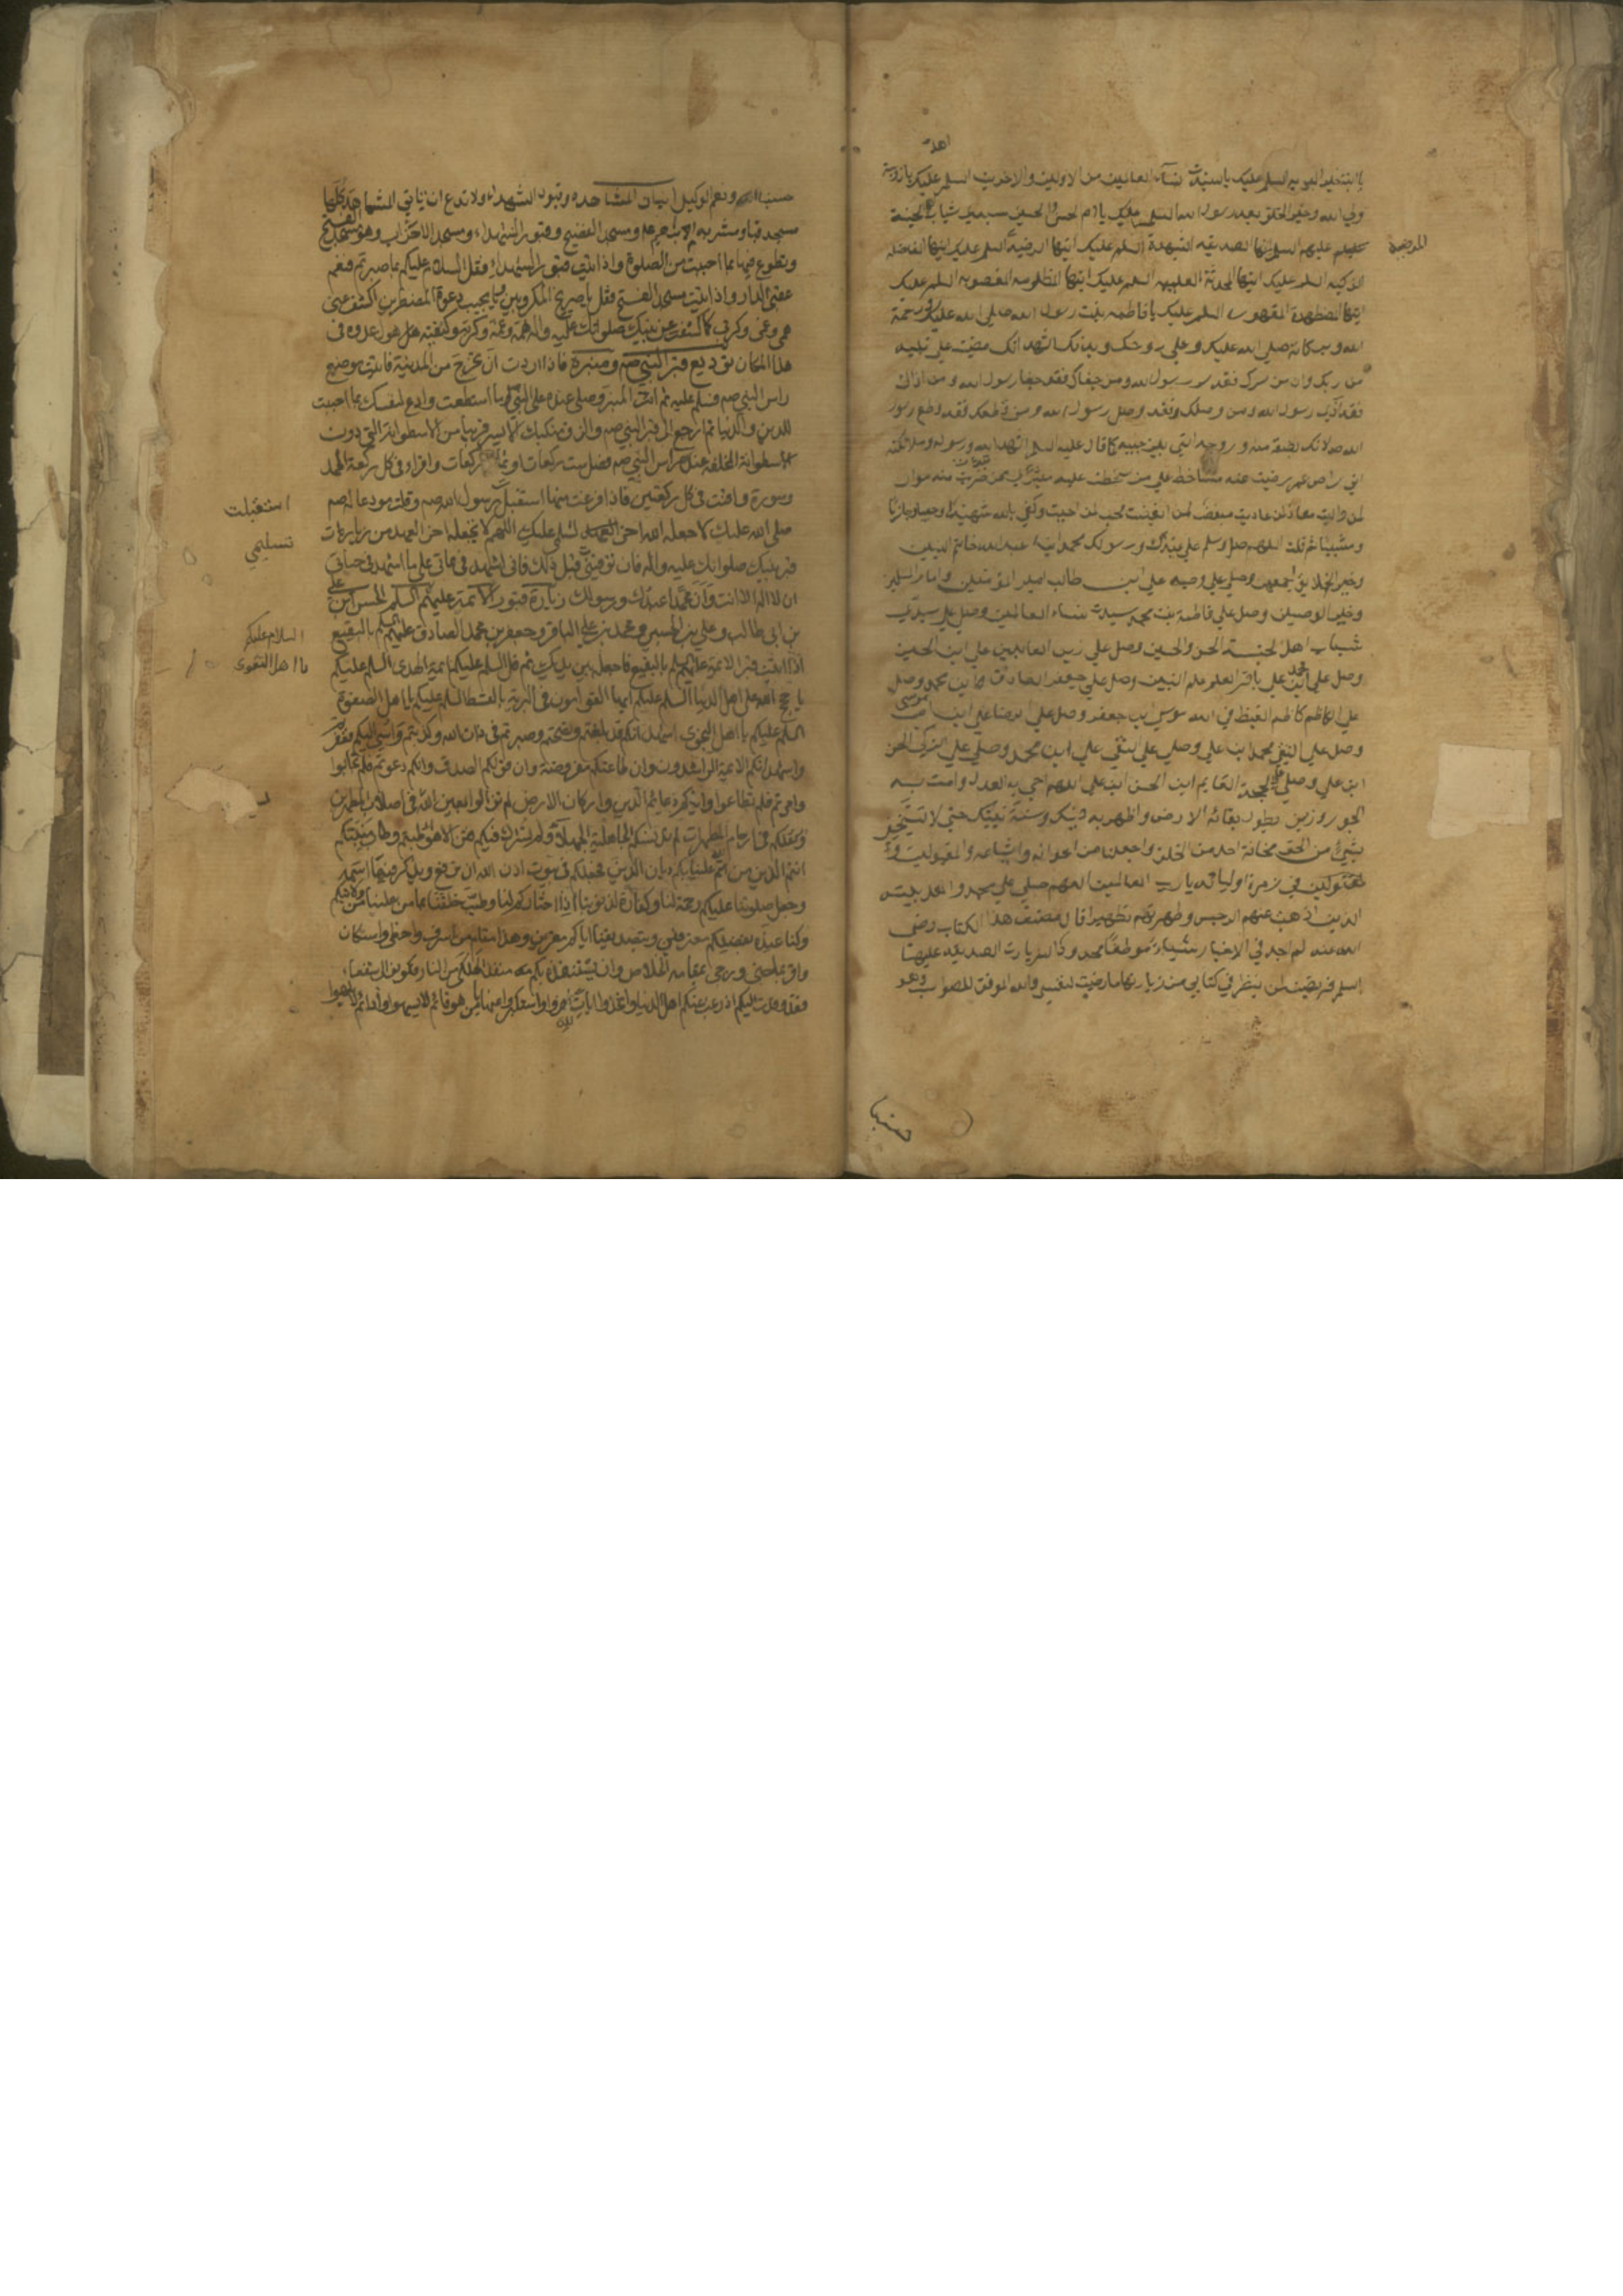 اهل
يا ابنة خير البرية السلم عليك يا سيدة نساء العالمين من الاولين والاخرين السلم عليك يا زوجة
ولي الله وخير الخلق بعد رسول الله السلم عليك يا ام الحسن والحسين سيدي شباب اهل الجنة
عليهم السلم ايتها الصديقه الشهيدة السلم عليك ايتها الرضية السلم عليك ايتها الفاضله
المرضية
الزكيه السلم عليك ايتها المحدثة العليمه السلم عليك ايتها المظلومه المغصوبه السلم عليك
ايتها المضطهدة المقهوره السلم عليك يا فاطمه بنت رسول الله صلى الله عليك ورحمة
الله وبركاته صلي الله عليك وعلي روحك وبدنك اشهد انك مضيت علي بينه
من ربك وان من سرك فقد سر رسول الله ومن جفاك فقد جفا رسول الله ومن اذاك
فقد اذي رسول الله ومن وصلك فقد وصل رسول الله ومن قطعك فقد قطع رسول
الله لانك بضعة منه وروحه التي بين جنبيه كما قال عليه السلم اشهد الله ورسوله وملائكته
اني راض عمن رضيت عنه ساخط علي من سخطت عليه متبرئ ممن تبرئت منه موال
لمن واليت معاد لمن عاديت مبغض لمن ابغضت محب لمن احببت وكفي بالله شهيدا وحسيبا وجازيا
ومثيبا ثم قلت اللهم صل وسلم علي عبدك ورسولك محمد ابن عبد الله خاتم النبيين
وخير الخلايق اجمعين وصل علي وصيه علي ابن ابي طالب امير المؤمنين وامام المسلمين
وخير الوصيين وصل علي فاطمة بنت محمد سيدة نساء العالمين وصل علي سيدي
شباب اهل الجنة الحسن والحسين وصل علي زين العابدين علي ابن الحسين
وصل علي محمد ابن علي باقر العلم علم النبيين وصل علي جعفر الصادق ابن محمد وصل
علي الكاظم كاظم الغيظ في الله موسي ابن جعفر وصل علي الرضا علي ابن موسي
وصل علي التقي محمد ابن علي وصلي علي النقي علي ابن محمد وصلي علي الزكي الحسن
ابن علي وصلي علي الحجة القايم ابن الحسن ابن علي اللهم احي به العدل وامت به
الجور وزين بطول بقائه الارض واظهر به دينك وسنة نبيك حتي لا يستخفي
بشئ من الحق مخافة احد من الخلق واجعلنا من اعوانه واشياعه والمقبولين
في زمرة اوليائه يا رب العالمين اللهم صلي علي محمد واهل بيته
الذين اذهبت عنهم الرجس وطهرتهم تطهيرا قال مصنف هذا الكتاب رضي
الله عنه لم اجد في الاخبار شيئا موظفا محدودا لزيارت الصديقه عليها
السلم فرضيت لمن نظر في كتابي من زيارتها ما رضيت لنفسي والله الموفق للصواب وهو
حسبنا
حسبنا الله ونعم الوكيل اتيان المشاهده وقبور الشهداء ولا تدع ان تاتي المشاهد كلها
مسجد قبا ومشربه ام ابراهيم ومسجد الفضيخ وقبور الشهداء ومسجد الاحزاب وهو مسجد الفتح
وتطوع فيها بما احببت من الصلوة واذا اتيت قبور الشهداء فقل السلام عليكم بما صبرتم فنعم
عقبى الدار واذا اتيت مسجد الفتح فقل يا صريخ المكروبين ويا مجيب دعوة المضطرين اكشف عني
همي وغمي وكربي كما كشفت عن نبيك صلواتك عليه واله همه وغمه وكربه وكفيته هول عدوه في
هذا المكان توديع قبر النبي صم ومنبره فاذا اردت ان تخرج من المدينة فائت موضع
راس النبي صم فسلم عليه ثم ائت المنبر وصلى عنده على النبي صم ما استطعت وادع لنفسك بما احببت
للدين والدنيا ثم ارجع الى قبر النبي صم والزق منكبك الايسر قريبا من الاسطوانة التي دون
الاسطوانة المخلفه عند راس النبي صم فصل ست ركعات او ثمان ركعات واقراء في كل ركعة الحمد
وسورة واقنت في كل ركعتين فاذا فرغت منها استقبل رسول الله صم وقلت مودعا له صم
استقبلت
صلى الله عليك لا جعله الله اخر العهد لتسليمي عليك اللهم لا تجعله اخر العهد من زيارت
تسليمي
قبر نبيك صلواتك عليه واله فان توفيتني قبل ذلك فاني اشهد في مماتي على ما اشهد في حياتي
ان لا اله الا انت وان محمدا عبدك ورسولك زيارة قبور الائمة عليهم السلم الحسن ابن علي
بن ابي طالب وعلي بن الحسين ومحمد بن علي الباقر وجعفر بن محمد الصادق عليهم السلم بالبقيع
السلام عليكم
اذا اتيت قبر الائمة عليهم السلم بالبقيع فاجعله بين يديك ثم قل السلم عليكم ائمة الهدى السلم عليكم
يا اهل التقوى
يا حجج الله على اهل الدنيا السلم عليكم ايها القوامون في البرية بالقسط السلم عليكم يا اهل الصفوة
السلم عليكم يا اهل النجوى اشهد انكم قد بلغتم ونصحتم وصبرتم في ذات الله وكذبتم واسئ اليكم فغفرتم
واشهد انكم الائمة الراشدون وان طاعتكم مفروضة وان قولكم الصدق وانكم دعوتم فلم تجابوا
وامرتم فلم تطاعوا وانكم دعائم الدين واركان الارض لم تزالوا بعين الله في اصلاب المطهرين
وينقلكم في ارحام المطهرات لم تدنسكم الجاهلية الجهلاء ولم تشرك فيكم فتن الاهواء طبتم وطاب منبتكم
انتم الذين من بكم علينا ديان الدين فجعلكم في بيوت اذن الله ان ترفع ويذكر فيها اسمه
وجعل صلوتنا عليكم رحمة لنا وكفارة لذنوبنا اذا اختاركم لنا وطيب خلقنا بما من علينا من ولايتكم
وكنا عنده بفضلكم معترفين وبتصديقنا اياكم مقرين وهذا مقام من اسرف واخطا واستكان
واقر بما جنى ورجى بمقامه الخلاص وان يستنقذه بكم منقذ الهلكى من النار فكونوا لي شفعاء
فقد وفدت اليكم اذ رغب عنكم اهل الدنيا واتخذوا ايات الله هزوا واستكبروا عنها يا من هو قائم لا يسهوا ودائم لا يلهوا